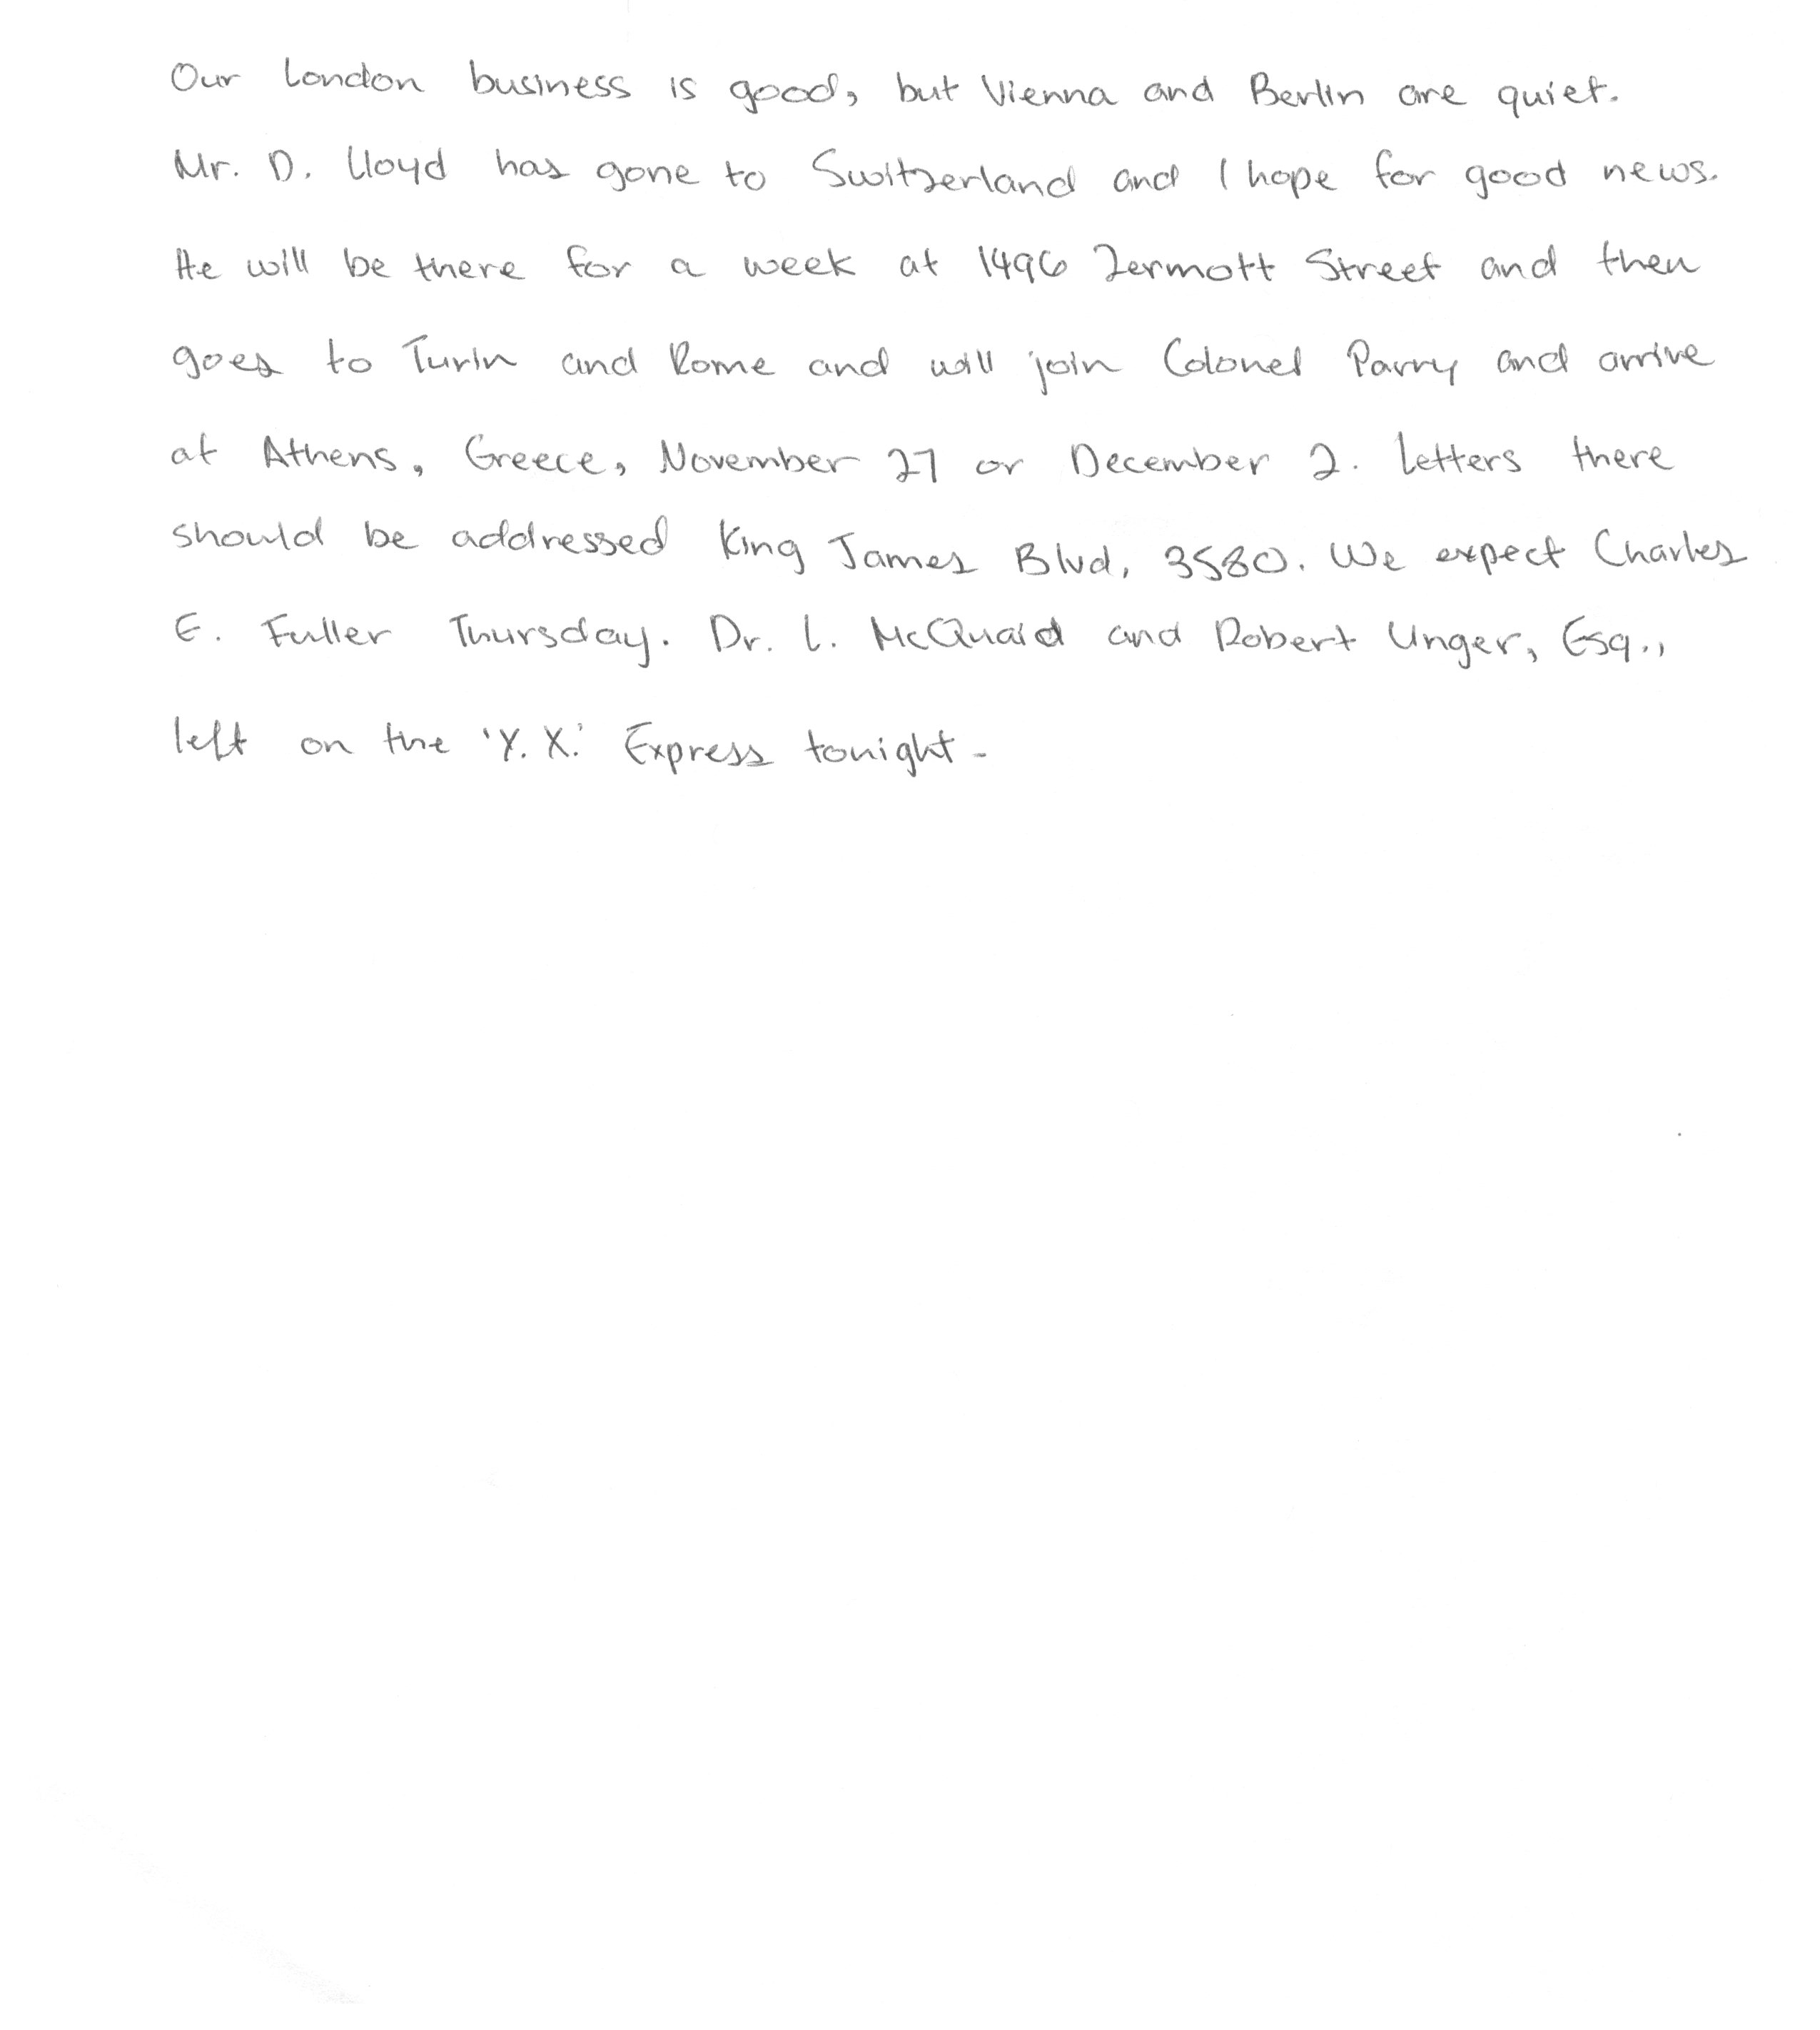 Our London business is good, but Vienna and Berlin are quiet.
Mr. D. Lloyd has gone to Switzerland and I hope for good news.
He will be there for a week at 1496 Zermott Street and then
goes to Turin and Rome and will join Colonel Parry and arrive
at Athens, Greece, November 27 or December 2. Letters there
should be addressed King James Blvd, 3580. We expect Charles
E. Fuller Thursday. Dr. L. McQuaid and Robert Unger, Esq.,
left on the 'Y. X.' Express tonight.